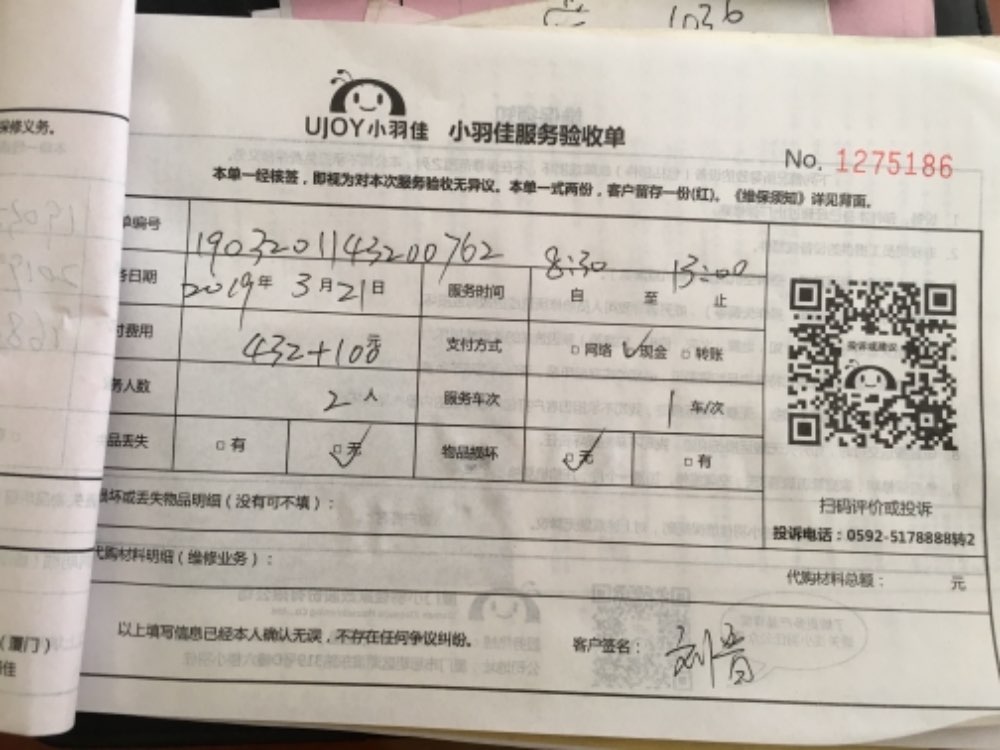 1036
保修义务。
UJOY小羽佳 小羽佳服务验收单
No. 1275186
本单一经核签,即视为对本次服务验收无异议。本单一式两份,客户留存一份(红)。《维保须知》详见背面。
单编号 1903201143200762 8:30 13:00
务日期 2019年3月21日 服务时间 自 至 止
付费用 432+108元 支付方式 □网络 ✓现金 □转账
务人数 2人 服务车次 1 车/次
品丢失 □有 □无✓ 物品损坏 □无✓ □有
投诉或建议
扫码评价或投诉
投诉电话:0592-5178888转2
损坏或丢失物品明细(没有可不填):
代购材料明细(维修业务):
代购材料总额: 元
以上填写信息已经本人确认无误,不存在任何争议纠纷。
客户签名:
(厦门)
佳